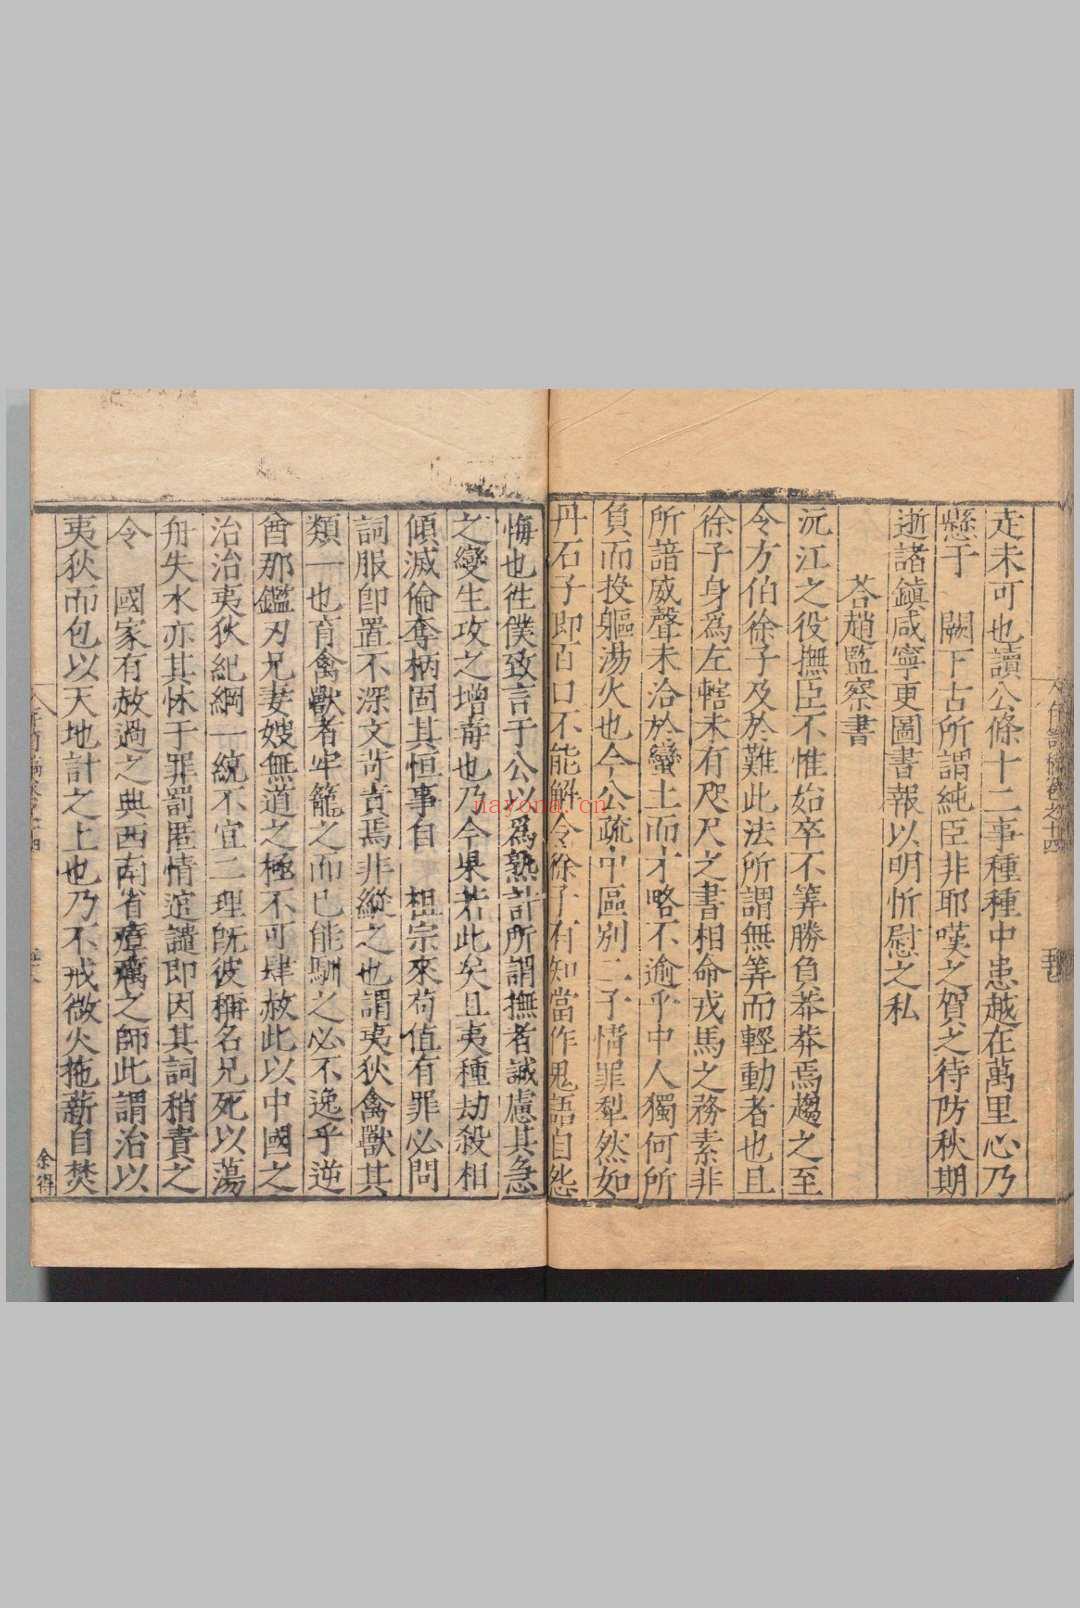 走未可也讀公條十二事種種中患越在萬里心乃
懸于　闕下古所謂純臣非耶嘆之賀之待防秋期
逝諸鎮咸寧更圖書報以明忻慰之私
荅趙監察書
沅江之役撫臣不惟始卒不筭勝負莽莽焉趨之至
令方伯徐子及於難此法所謂無筭而輕動者也且
徐子身爲左轄未有咫尺之書相命戎馬之務素非
所諳威聲未洽於蠻土而才略不逾乎中人獨何所
負而投軀湯火也今公疏中區別二子情罪犁然如
丹石子即百口不能解令徐子有知當作鬼語自怨
悔也徃僕致言于公以爲熟計所謂撫者誠慮其急
之變生攻之增毒也乃今果若此矣且夷種劫殺相
傾滅倫奪柄固其恒事自　祖宗來苟值有罪必問
詞服卽置不深文苛責焉非縱之也謂夷狄禽獸其
類一也育禽獸者牢籠之而已能馴之必不逸乎逆
酋那鑑刃兄妻嫂無道之極不可肆赦此以中國之
治治夷狄紀綱一統不宜二理旣彼稱名兄死以蕩
舟失水亦其怵于罪罰匿情遠譴即因其詞稍責之
令　國家有赦過之典西南省瘴癘之師此謂治以
夷狄而包以天地計之上也乃不戒微火拖薪自焚
余得
卷之十四
navona.cn